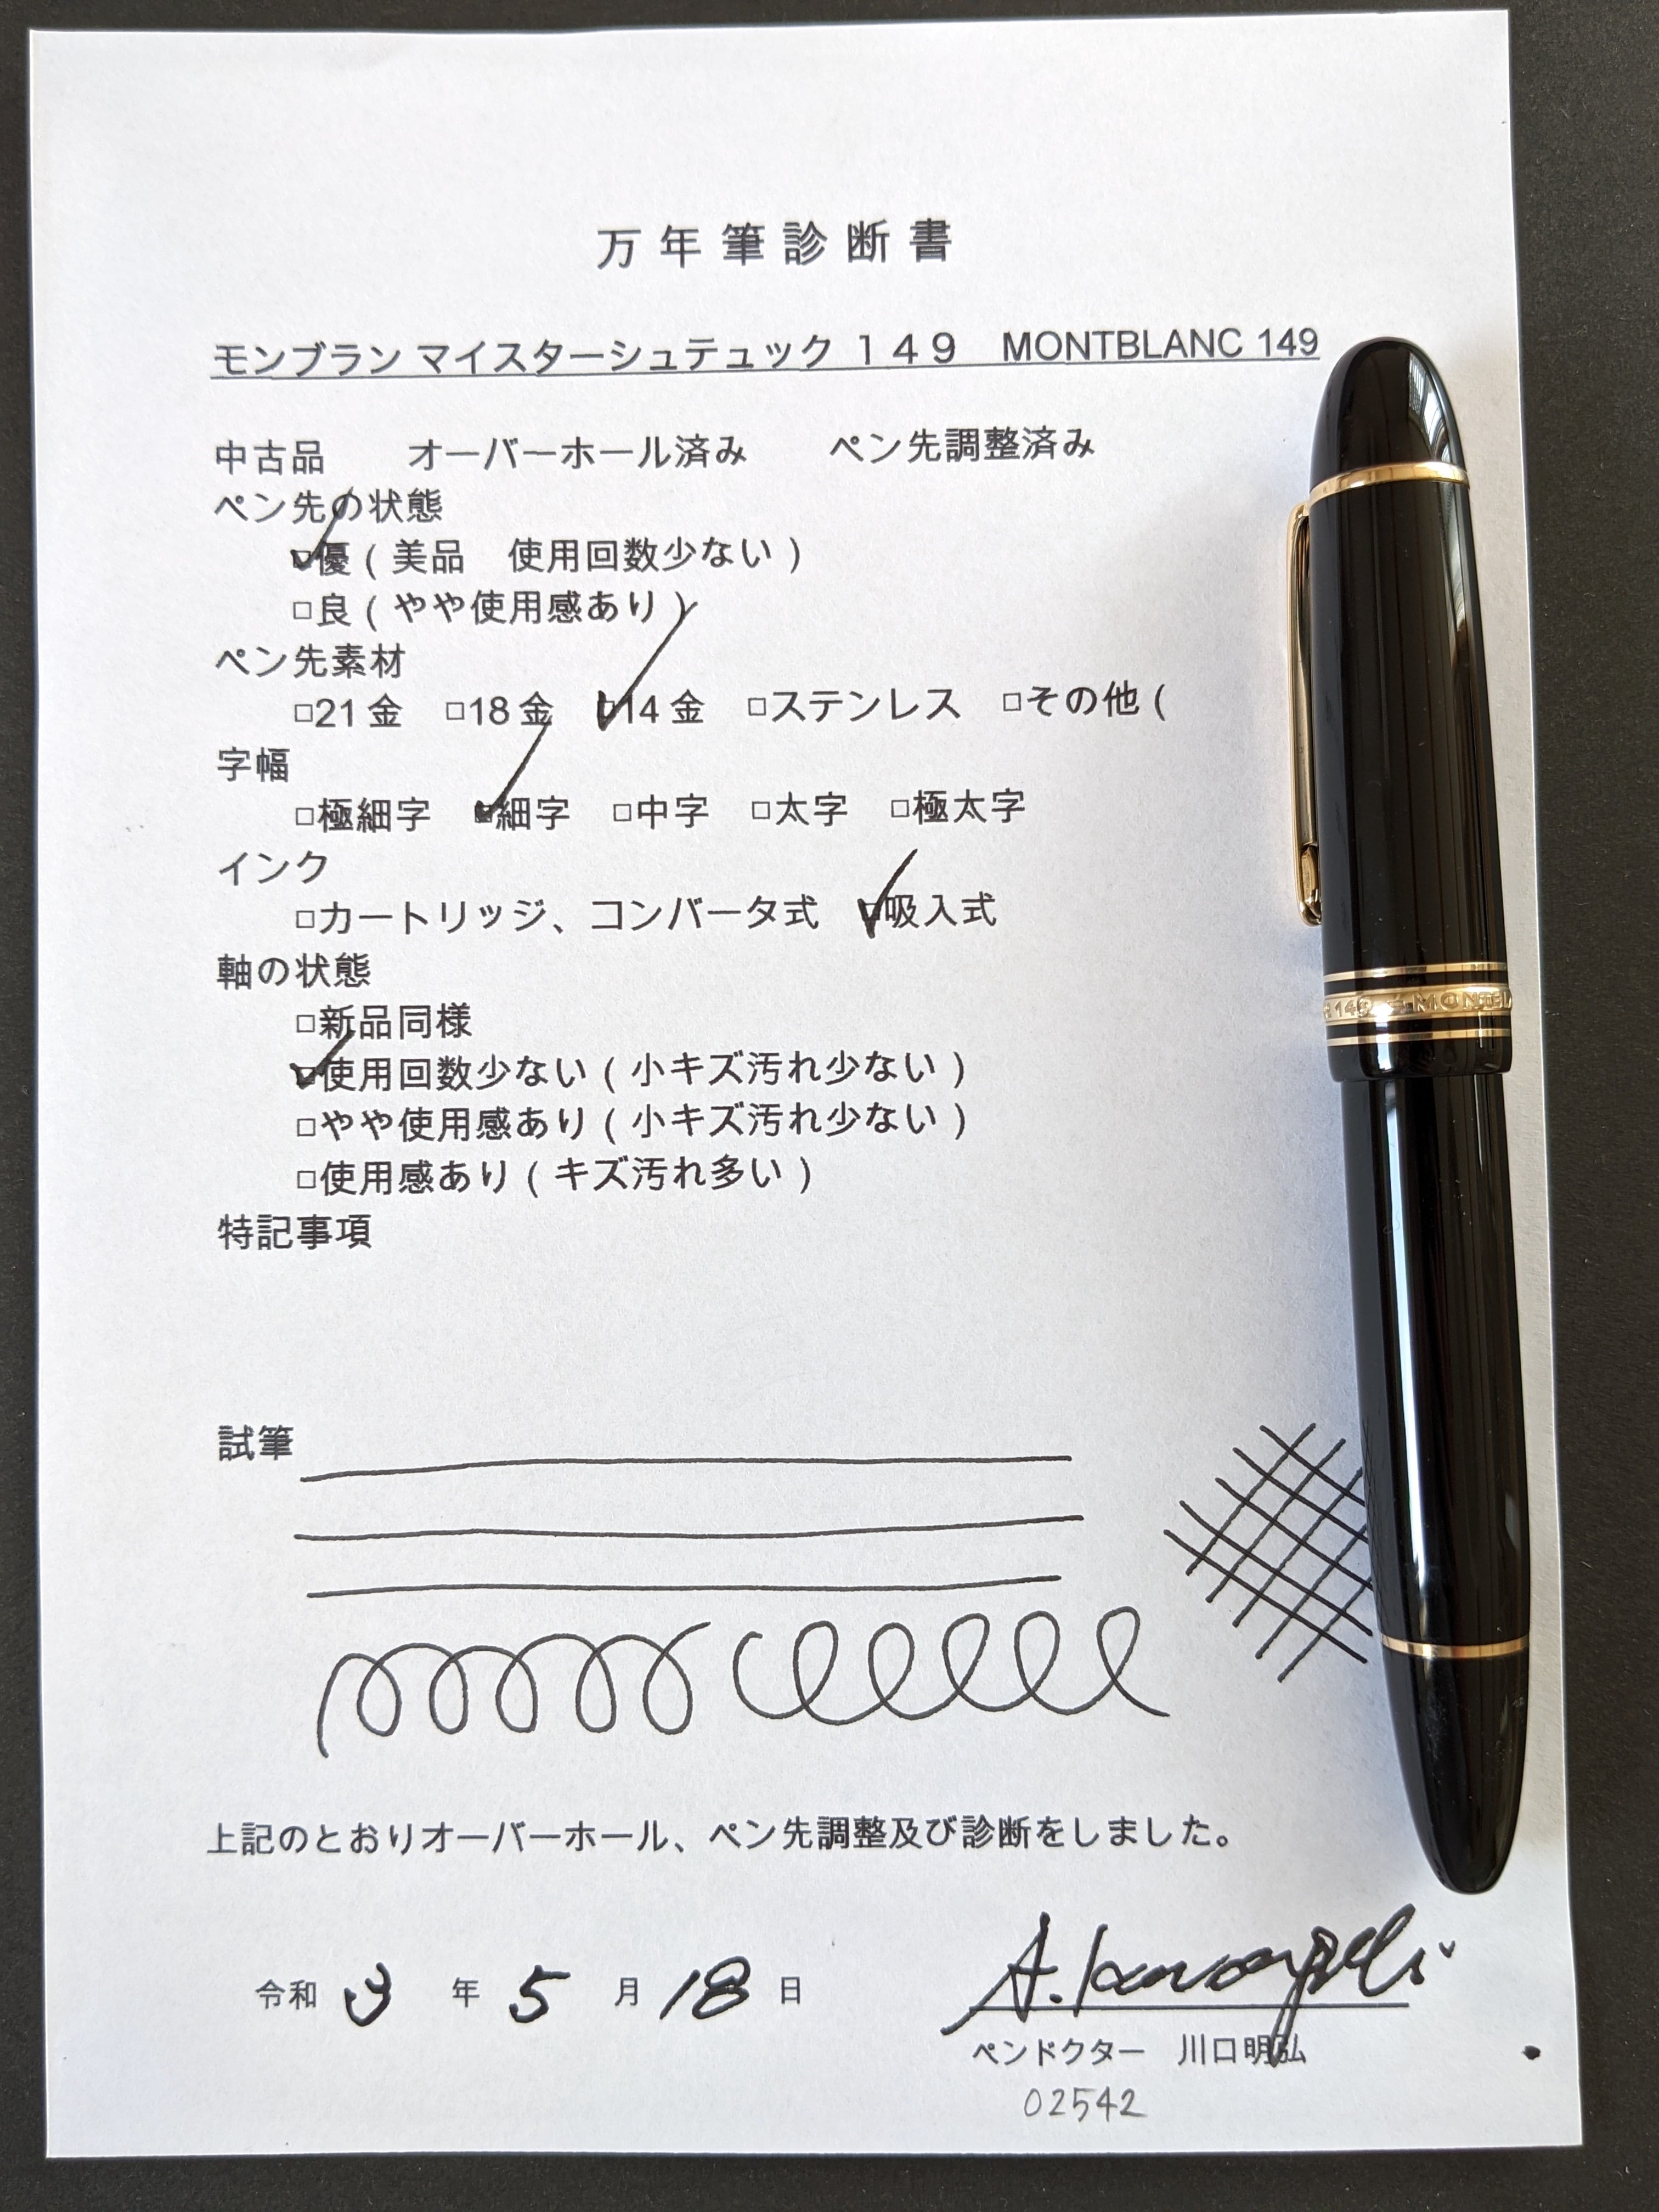 万年筆診断書
モンブラン マイスターシュテュック １４９　MONTBLANC 149
中古品　　オーバーホール済み　　ペン先調整済み
ペン先の状態
☑優（美品　使用回数少ない）
□良（やや使用感あり）
ペン先素材
□21金　□18金　☑14金　□ステンレス　□その他（
字幅
□極細字　☑細字　□中字　□太字　□極太字
インク
□カートリッジ、コンバータ式　☑吸入式
軸の状態
□新品同様
☑使用回数少ない（小キズ汚れ少ない）
□やや使用感あり（小キズ汚れ少ない）
□使用感あり（キズ汚れ多い）
特記事項
試筆
上記のとおりオーバーホール、ペン先調整及び診断をしました。
令和 3 年 5 月 18 日
ペンドクター　川口明弘
02542
149 MONTBL